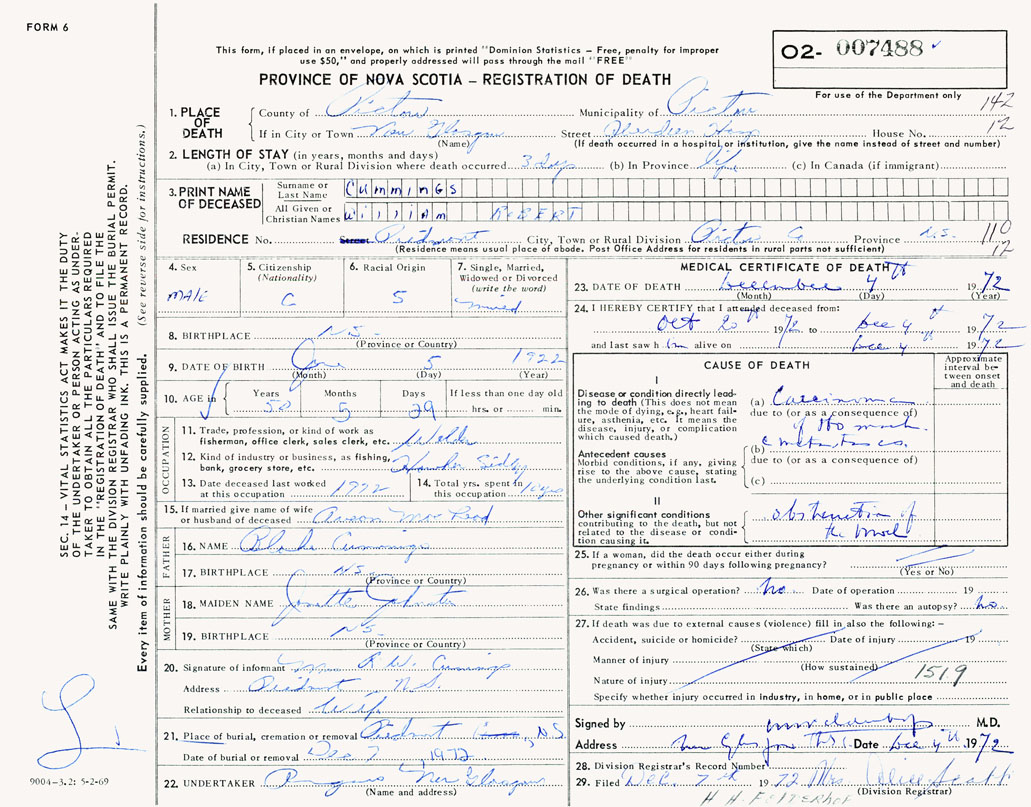 FORM 6
This form, if placed in an envelope, on which is printed "Dominion Statistics – Free, penalty for improper
use $50," and properly addressed will pass through the mail "FREE"
O2- 007488
For use of the Department only
PROVINCE OF NOVA SCOTIA – REGISTRATION OF DEATH
142
12
1. PLACE OF DEATH
County of Pictou Municipality of Pictou
If in City or Town New Glasgow Street Aberdeen Hosp House No.
(Name) (If death occurred in a hospital or institution, give the name instead of street and number)
2. LENGTH OF STAY (in years, months and days)
(a) In City, Town or Rural Division where death occurred 3 days (b) In Province life (c) In Canada (if immigrant)
3. PRINT NAME OF DECEASED
Surname or Last Name CUMMINGS
All Given or Christian Names William ROBERT
RESIDENCE No. Street Piedmont City, Town or Rural Division Pictou Co Province N.S. 110
(Residence means usual place of abode. Post Office Address for residents in rural parts not sufficient) 12
4. Sex
MALE
5. Citizenship
(Nationality)
C
6. Racial Origin
S
7. Single, Married,
Widowed or Divorced
(write the word)
8. BIRTHPLACE N.S.
(Province or Country)
9. DATE OF BIRTH 5 1922
(Month) (Day) (Year)
10. AGE in Years Months Days If less than one day old
50 5 29 hrs. or min.
OCCUPATION
11. Trade, profession, or kind of work as
fisherman, office clerk, sales clerk, etc. Welder
12. Kind of industry or business, as fishing,
bank, grocery store, etc. Hawker Sidley
13. Date deceased last worked
at this occupation 1972
14. Total yrs. spent in
this occupation 10 yrs
15. If married give name of wife
or husband of deceased
FATHER
16. NAME Cummings
17. BIRTHPLACE N.S.
(Province or Country)
MOTHER
18. MAIDEN NAME
19. BIRTHPLACE N.S.
(Province or Country)
20. Signature of informant Mrs R. W. Cummings
Address Piedmont, N.S.
Relationship to deceased Wife
21. Place of burial, cremation or removal Piedmont, N.S.
Date of burial or removal Dec 7, 1972
22. UNDERTAKER New Glasgow
(Name and address)
MEDICAL CERTIFICATE OF DEATH
23. DATE OF DEATH December 4th 1972
(Month) (Day) (Year)
24. I HEREBY CERTIFY that I attended deceased from:
Oct 20th 1972 to Dec 4th 1972
and last saw him alive on Dec 4th 1972
CAUSE OF DEATH
Approximate
interval be-
tween onset
and death
I
Disease or condition directly lead-
ing to death (This does not mean
the mode of dying, e.g., heart fail-
ure, asthenia, etc. It means the
disease, injury, or complication
which caused death.)
(a) Carcinoma
due to (or as a consequence of)
of stomach
Antecedent causes
Morbid conditions, if any, giving
rise to the above cause, stating
the underlying condition last.
(b) c metastases
due to (or as a consequence of)
(c)
II
Other significant conditions
contributing to the death, but not
related to the disease or condi-
tion causing it.
obstruction of
the bowel
25. If a woman, did the death occur either during
pregnancy or within 90 days following pregnancy?
(Yes or No)
26. Was there a surgical operation? no Date of operation 19
State findings Was there an autopsy? no
27. If death was due to external causes (violence) fill in also the following: –
Accident, suicide or homicide? Date of injury 19
(State which)
Manner of injury
(How sustained)
Nature of injury 151.9
Specify whether injury occurred in industry, in home, or in public place
Signed by M.D.
Address New Glasgow N.S. Date Dec 4th 1972
28. Division Registrar's Record Number
29. Filed Dec. 7th 1972 Mrs. Alice Scott
(Division Registrar)
SEC. 14 – VITAL STATISTICS ACT MAKES IT THE DUTY
OF THE UNDERTAKER OR PERSON ACTING AS UNDER-
TAKER TO OBTAIN ALL THE PARTICULARS REQUIRED
IN THE "REGISTRATION OF DEATH" AND TO FILE THE
SAME WITH THE DIVISION REGISTRAR WHO SHALL ISSUE THE BURIAL PERMIT.
WRITE PLAINLY WITH UNFADING INK. THIS IS A PERMANENT RECORD.
Every item of information should be carefully supplied. (See reverse side for instructions.)
9004-3.2: 5-2-69